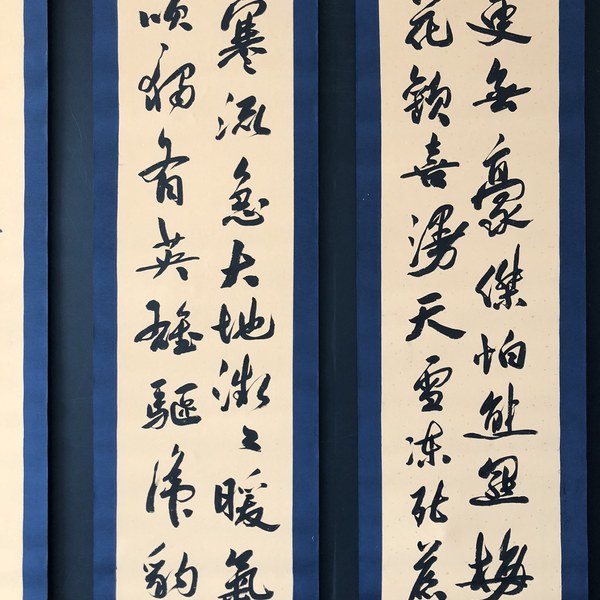 寒流急大地微〻暖氣
吹獨有英雄驅虎豹
更無豪傑怕熊羆梅
花歡喜漫天雪凍死蒼